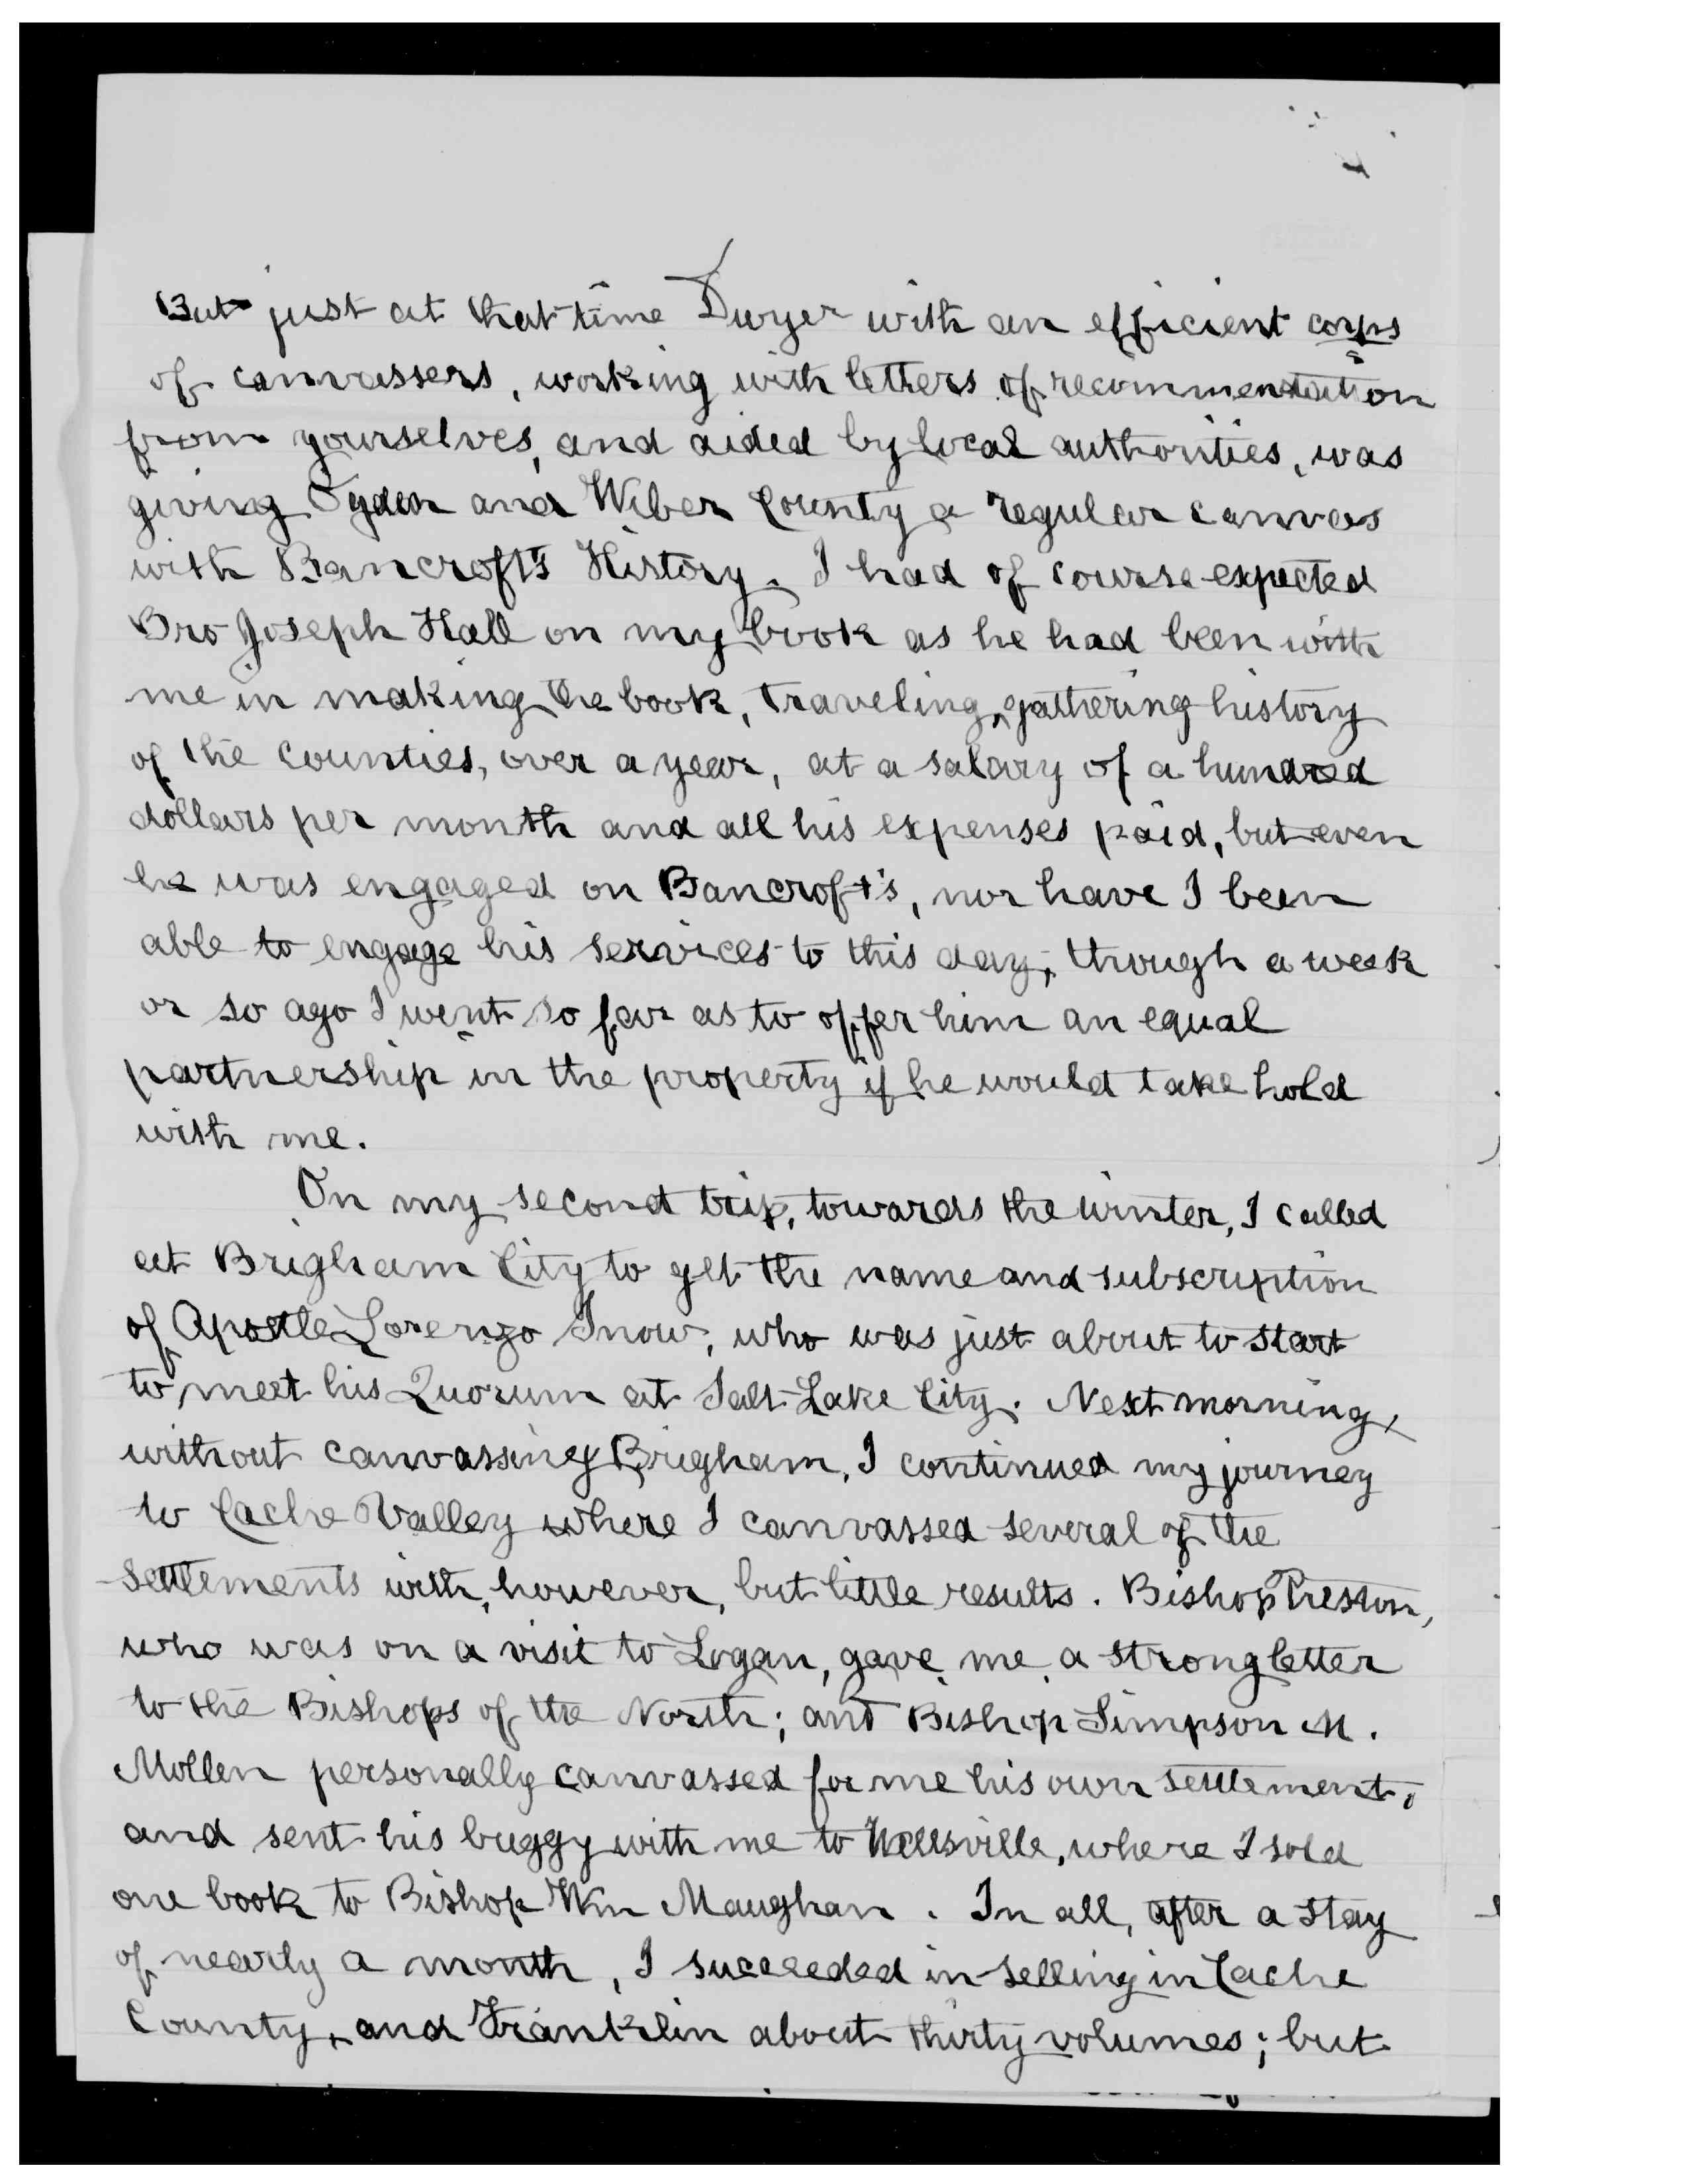 But just at that time Dwyer with an efficient corps
of canvassers, working with letters of recommendation
from yourselves, and aided by local authorities, was
giving Ogden and Wiber County a regular canvas
with Bancroft's History. I had of course expected
Bro Joseph Hall on my book as he had been with
me in making the book, traveling, gathering history
of the counties, over a year, at a salary of a hundred
dollars per month and all his expenses paid, but even
he was engaged on Bancroft's, nor have I been
able to engage his services to this day; though a week
or so ago I went so far as to offer him an equal
partnership in the property if he would take hold
with me.
On my second trip, towards the winter, I called
at Brigham City to get the name and subscription
of Apostle Lorenzo Snow, who was just about to start
to meet his Quorum at Salt Lake City. Next morning,
without canvassing Brigham, I continued my journey
to Cache Valley where I canvassed several of the
settlements with, however, but little results. Bishop Preston,
who was on a visit to Logan, gave me a strong letter
to the Bishops of the North; and Bishop Simpson M.
Mollen personally canvassed for me his own settlement,
and sent his buggy with me to Wellsville, where I sold
one book to Bishop Wm Maughan. In all, after a stay
of nearly a month, I succeeded in selling in Cache
County, and Franklin about thirty volumes; but